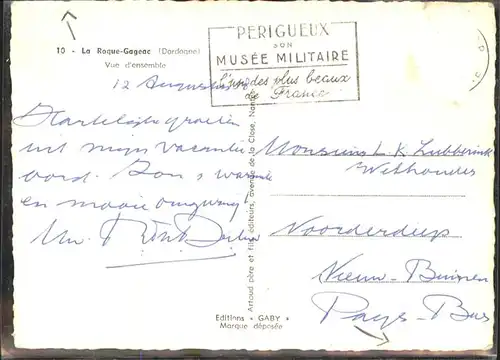 10 - La Roque-Gageac (Dordogne)
Vue d'ensemble
PERIGUEUX
SON
MUSÉE MILITAIRE
L'un des plus beaux
de France
12 Augustus
Hartelijke groeten
uit mijn vacantie
oord. Zon, warmte
en mooie omgeving
Monsieur L. K. Lubberink
Wethouder
Noorderdiep
Nieuw-Buinen
Pays-Bas
Artaud père et fils éditeurs, avenue de la Close, Nantes
Editions "GABY"
Marque déposée